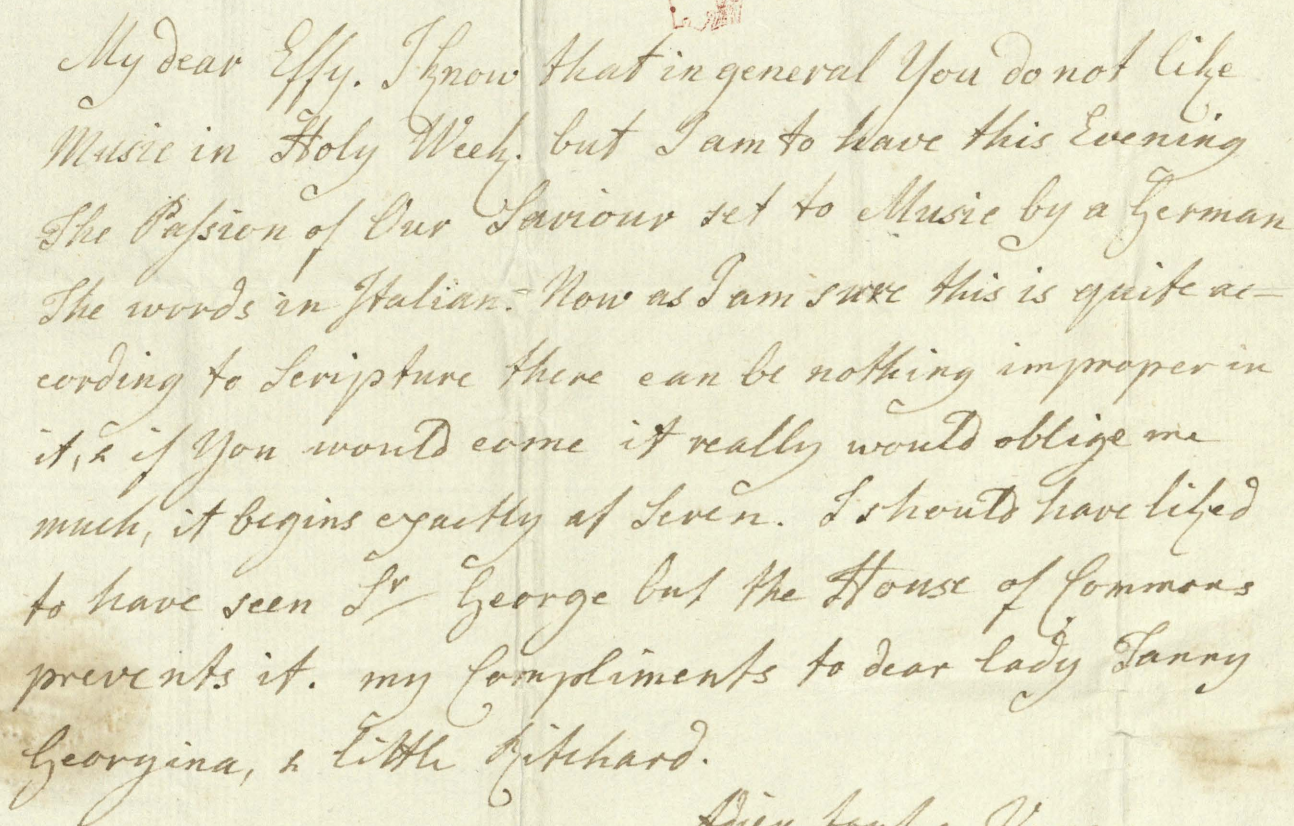 My dear Effy. I know that in general You do not like
Music in Holy Week. but I am to have this Evening
The Passion of Our Saviour set to Music by a German
The words in Italian. Now as I am sure this is quite ac=
cording to Scripture there can be nothing improper in
it, & if You would come it really would oblige me
much, it begins exactly at Seven. I should have liked
to have seen Sr George but the House of Commons
prevents it. my Compliments to dear Lady Fanny
Georgina, & little Ritchard.